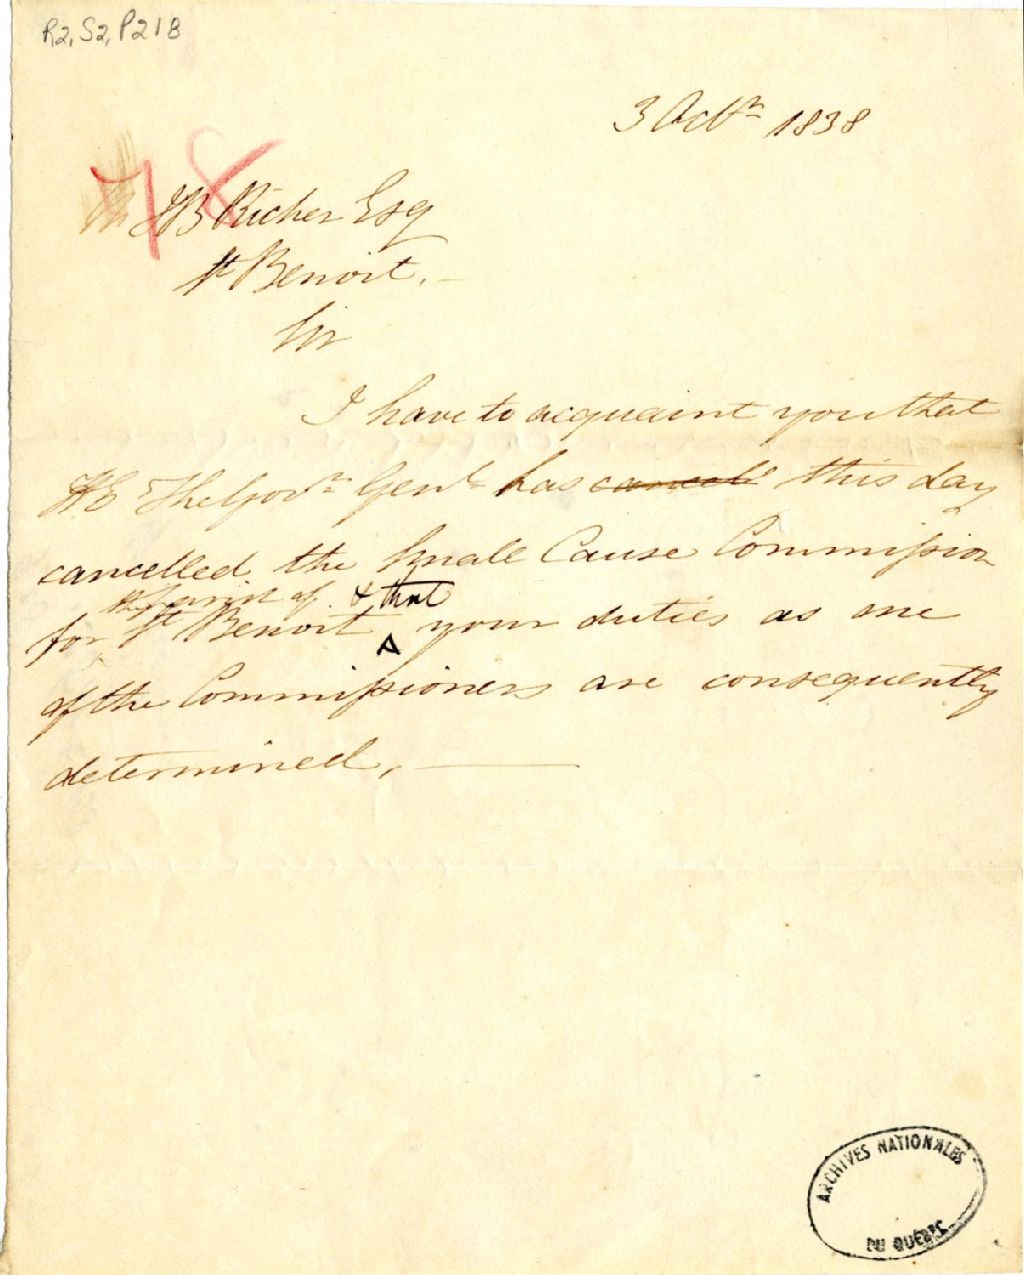 R2, S2, P218
3 Octbr 1838
78
JB Richer Esq
St Benoit. —
Sir
I have to acquaint you that
HE The Govr Genl has cancell this day
cancelled the Small Cause Commission
the parish of & that
for St Benoit your duties as one
of the Commissioners are consequently
determined, —
ARCHIVES NATIONALES
DU QUÉBEC